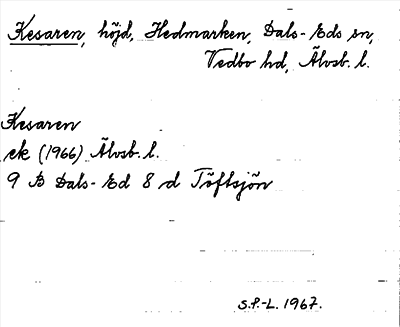 Kesaren, höjd, Hedmarken, Dals-Eds sn,
Vedbo hd, Älvsb. l.
Kesaren
ek (1966) Älvsb. l.
9 B Dals-Ed 8 d Töftsjön
S.P.-L. 1967.